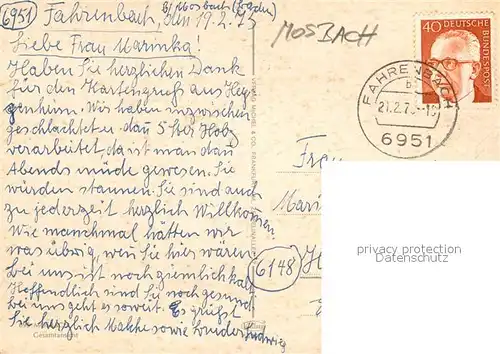 6951 Fahrenbach, den 19.2.73
b/ Mosbach (Baden)
Liebe Frau Marinka!
Haben Sie herzlichen Dank
für den Kartengruß aus Heg
genheim. Wir haben inzwischen
geschlachtet u dan 5 Ster Holz
verarbeitet, da ist man dan
Abends müde gewesen. Sie
würden staunen. Sie sind auch
zu jederzeit herzlich Willkommen.
Wie manchmal hätten wir
was übrig, wen Sie hier wären.
Bei uns ist noch ziemlich kalt
Hoffendlich sind Sie noch gesund
bei uns geht es soweit. Es grüßt
Sie herzlich sowie Ludwig
Gesamtansicht
MOSBACH
40 DEUTSCHE BUNDESPOST
FAHRENBACH
b
21.2.73
6951
Frau
Mari
6148
privacy protection
Datenschutz